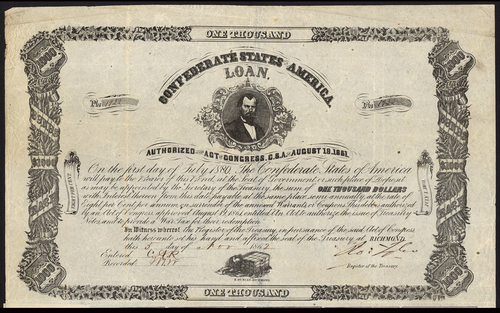 ONE THOUSAND
CONFEDERATE STATES AMERICA.
LOAN.
No
No
AUTHORIZED ACT OF CONGRESS, C.S.A. AUGUST 19, 1861.
On the first day of July 18 The Confederate States of America
will pay to the Bearer of this Bond, at the seat of Government, or such place of Deposit
as may be appointed by the Secretary of the Treasury, the sum of ONE THOUSAND DOLLARS
with Interest thereon from this date, payable at the same place, semi annually, at the rate of
Eight per Cent per annum, on surrender of the annexed Warrants or Coupons. This debt is authorized
by an Act of Congress approved August 19, 1861, entitled An Act to authorize the issue of Treasury
Notes, and to provide a War Tax for their redemption.
In Witness whereof, the Register of the Treasury, in pursuance of the said Act of Congress
hath hereunto set his hand and affixed the seal of the Treasury, at RICHMOND,
this 5 day of Nov 1862
Entered
Recorded
Register of the Treasury
$1000
ONE THOUSAND